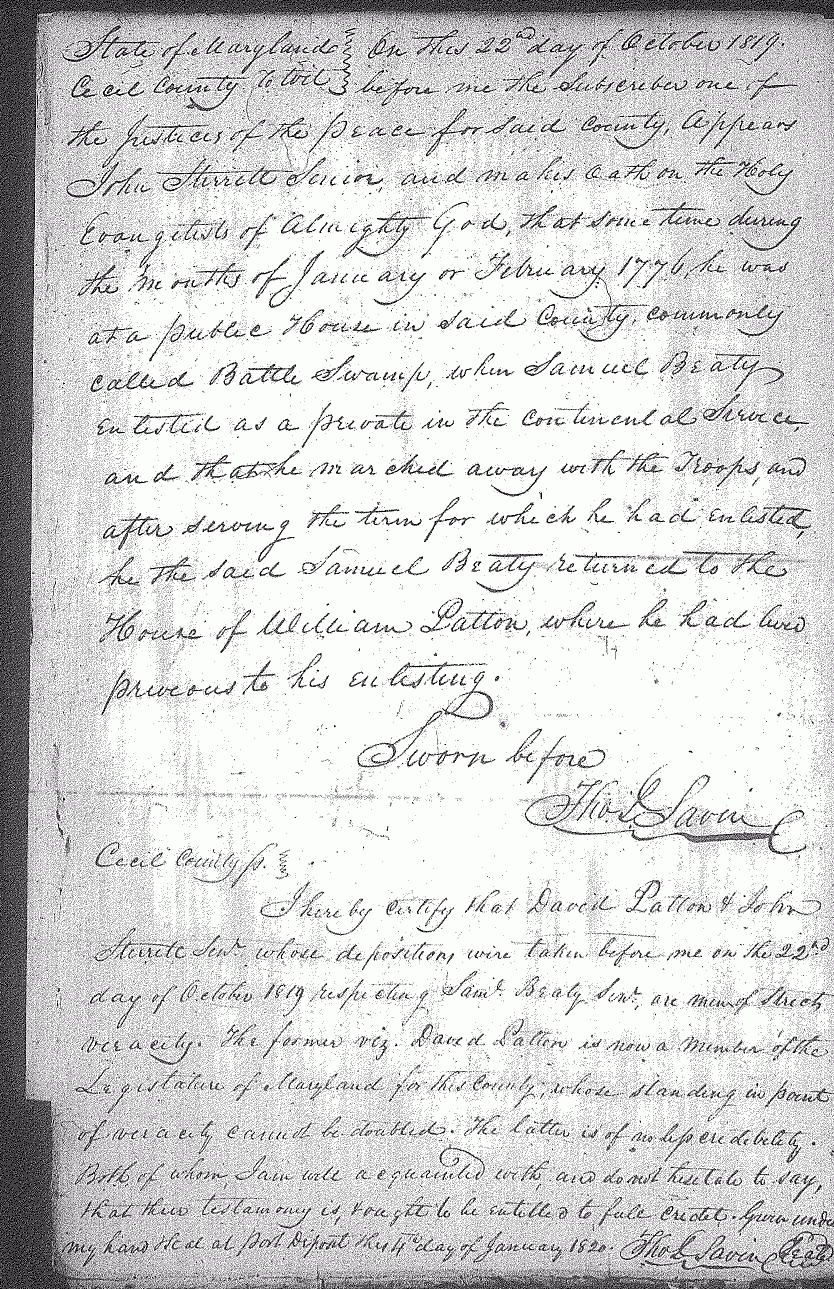 State of Maryland } On this 22nd day of October 1819.
Cecil County to wit } before me the Subscriber one of
the Justices of the peace for said County, Appears
John Sterrett Senior, and makes Oath on the Holy
Evangelists of Almighty God, that some time during
the months of January or February 1776, he was
at a public House in said County, commonly
called Battle Swamp, when Samuel Beaty
Enlisted as a private in the continental Service,
and that he marched away with the Troops, and
after serving the term for which he had Enlisted,
he the said Samuel Beaty returned to the
House of William Patton, where he had lived
preveous to his enlisting.
Sworn before
Thos. Savin
Cecil County ss. }
I hereby certify that David Patton & John
Sterrett Senr. whose depositions were taken before me on the 22nd
day of October 1819 respecting Saml. Beaty Senr, are men of Strict
veracity. The former viz. David Patton is now a Member of the
Legislature of Maryland for this County, whose standing in point
of veracity cannot be doubted. The latter is of no less credibility.
Both of whom I am well acquainted with, and do not hesitate to say,
that their testamony is, & ought to be entitled to full credit. Given under
my hand & Seal at Port Deposit this 4th day of January 1820. Thos. Savin Seal